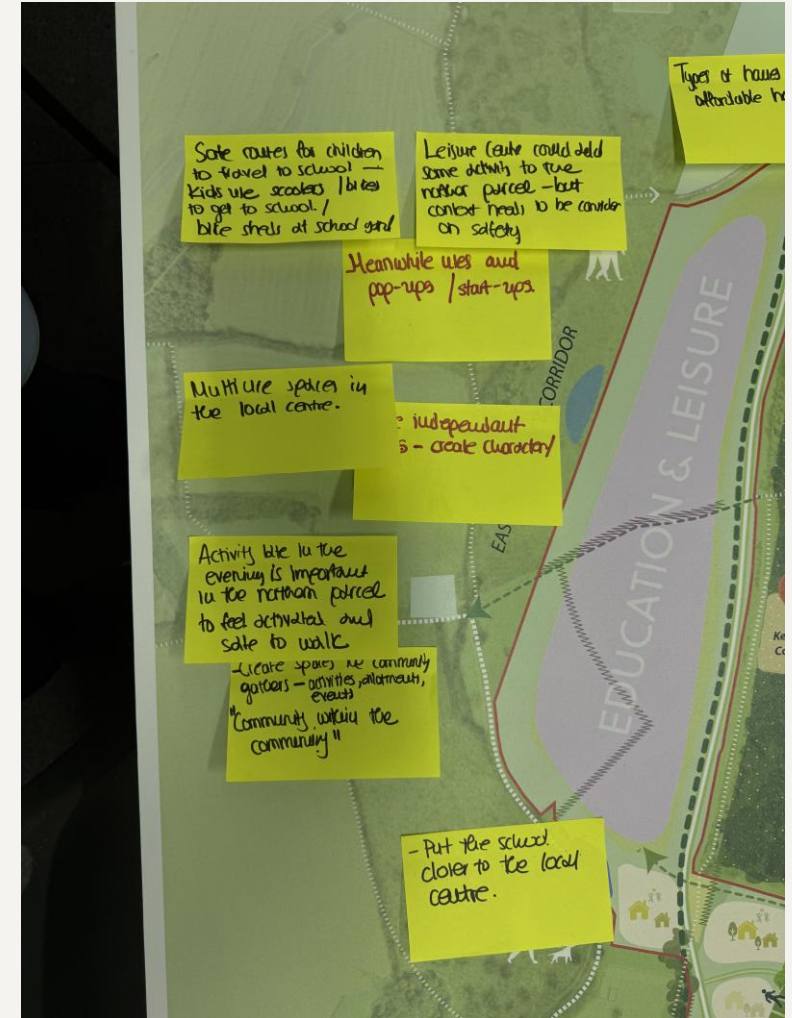 Types of houses
affordable h
Safe routes for children
to travel to school —
Kids use scooters / bikes
to get to school. /
bike sheds at school yard
Leisure Centre could add
some activity to the
northor parcel – but
context needs to be consider
on safety
Meanwhile uses and
pop-ups / start-ups.
Multi use spaces in
the local centre.
independant
s – create character/
CORRIDOR
EAS
EDUCATION & LEISURE
Activity late in the
evening is important
in the northern parcel
to feel activated and
safe to walk
-Create spaces community
gathers – activities, allotments,
events
"Community within the
community"
Ke
Co
- Put the school
closer to the local
centre.